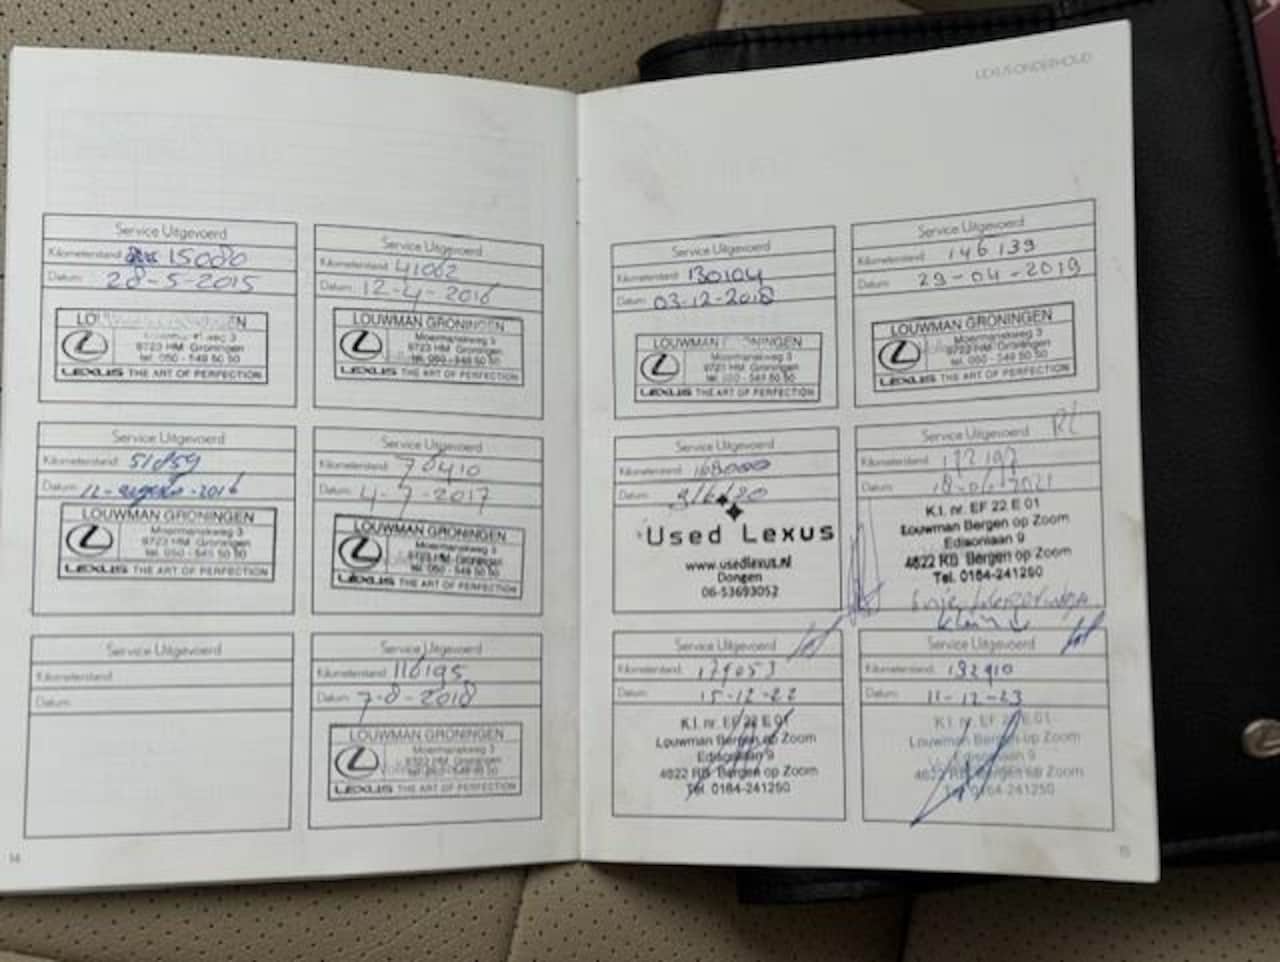 LEXUS ONDERHOUD
Service Uitgevoerd
Kilometerstand: 15080
Datum: 28-5-2015
9723 HM Groningen
tel. 050 - 549 50 50
LEXUS THE ART OF PERFECTION
Service Uitgevoerd
Kilometerstand: 41002
Datum: 12-4-2016
LOUWMAN GRONINGEN
Moermanskweg 3
9723 HM Groningen
tel. 050 - 549 50 50
LEXUS THE ART OF PERFECTION
Service Uitgevoerd
Kilometerstand:
Datum: 12-augustus-2016
LOUWMAN GRONINGEN
Moermanskweg 3
9723 HM Groningen
tel. 050 - 549 50 50
LEXUS THE ART OF PERFECTION
Service Uitgevoerd
Kilometerstand: 70410
Datum: 4-7-2017
LOUWMAN GRONINGEN
Moermanskweg 3
9723 HM Groningen
tel. 050 - 549 50 50
LEXUS THE ART OF PERFECTION
Service Uitgevoerd
Kilometerstand:
Datum:
Service Uitgevoerd
Kilometerstand: 116195
Datum: 7-8-2018
LOUWMAN GRONINGEN
Moermanskweg 3
9723 HM Groningen
LEXUS THE ART OF PERFECTION
14
Service Uitgevoerd
Kilometerstand: 130104
Datum: 03-12-2018
LOUWMAN GRONINGEN
Moermanskweg 3
9723 HM Groningen
tel. 050 - 549 50 50
LEXUS THE ART OF PERFECTION
Service Uitgevoerd
Kilometerstand: 146139
Datum: 29-04-2019
LOUWMAN GRONINGEN
Moermanskweg 3
9723 HM Groningen
tel. 050 - 549 50 50
LEXUS THE ART OF PERFECTION
Service Uitgevoerd
Kilometerstand: 168000
Datum: 9/6/20
Used Lexus
www.usedlexus.nl
Dongen
06-53693052
Service Uitgevoerd
Kilometerstand: 172197
Datum: 18-06-2021
K.I. nr. EF 22 E 01
Louwman Bergen op Zoom
Edisonlaan 9
4622 RB Bergen op Zoom
Tel. 0164-241250
Service Uitgevoerd
Kilometerstand: 179053
Datum: 15-12-22
K.I. nr. EF 22 E 01
Louwman Bergen op Zoom
Edisonlaan 9
4622 RB Bergen op Zoom
Tel. 0164-241250
Service Uitgevoerd
Kilometerstand: 192910
Datum: 11-12-23
K.I. nr. EF 22 E 01
Louwman Bergen op Zoom
Edisonlaan 9
4622 RB Bergen op Zoom
Tel. 0164-241250
15